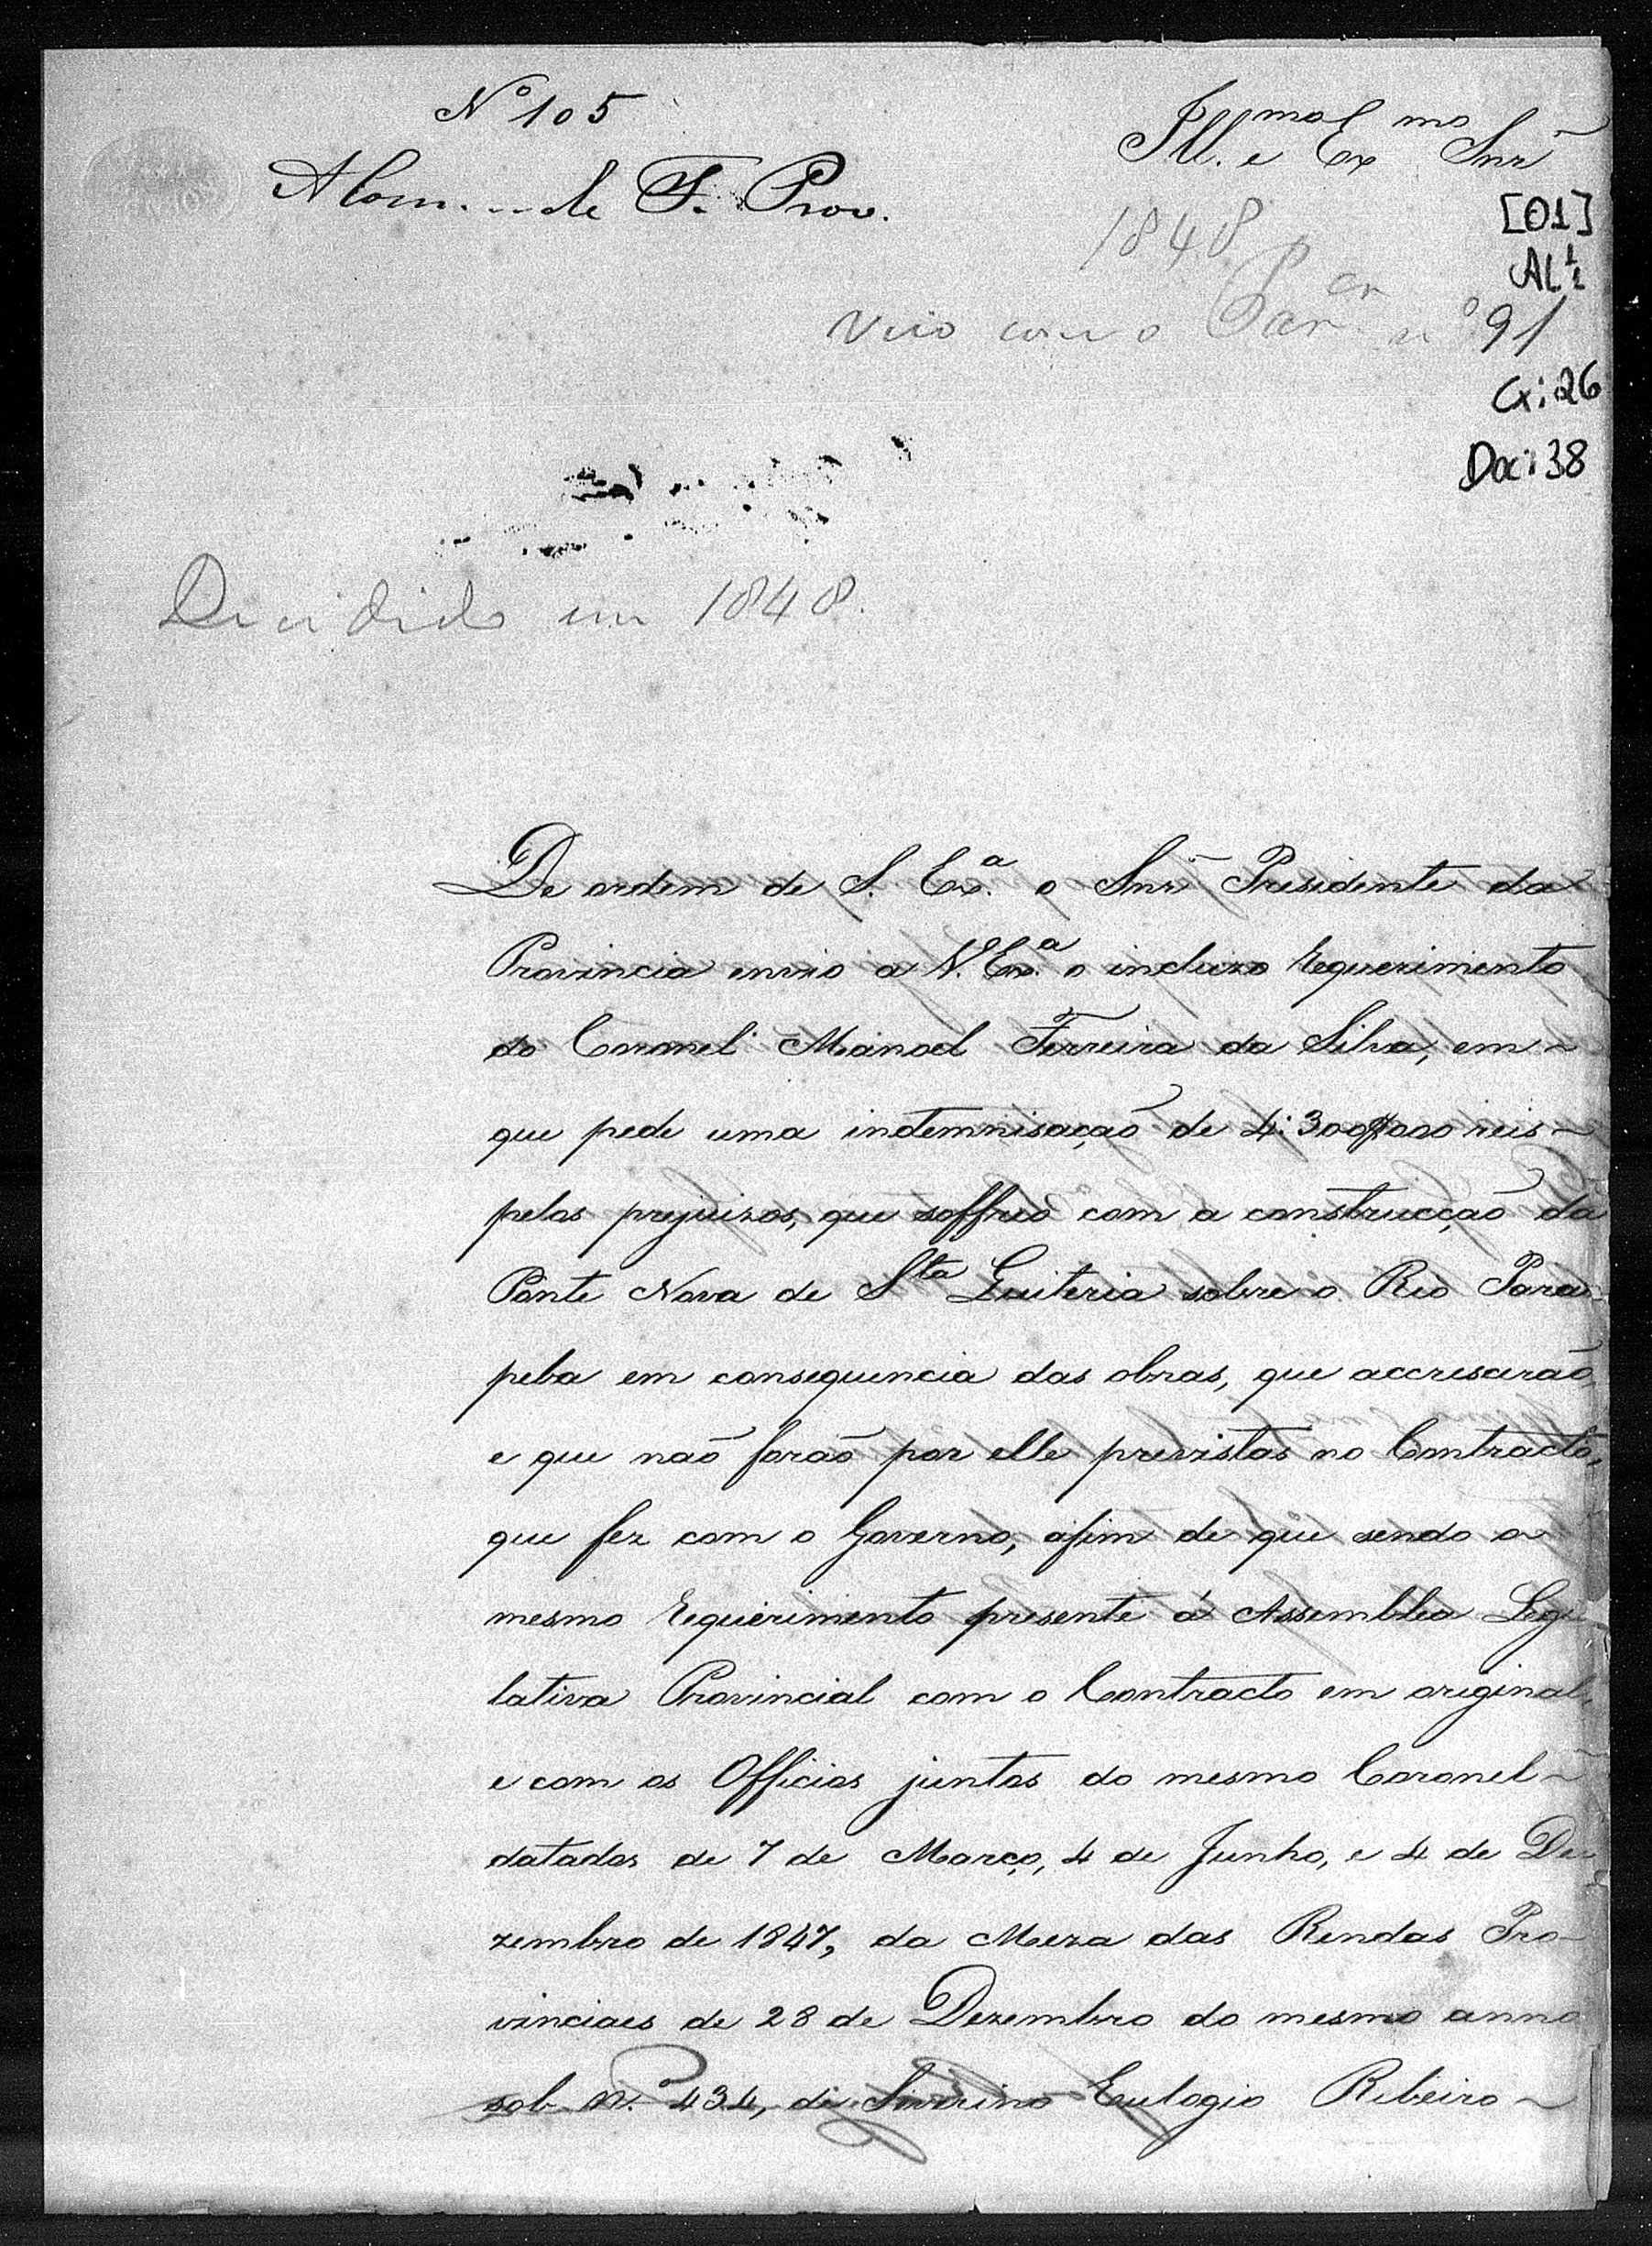 Nº 105
Ill.mo e Exmo Snr
A Com. de F. Prov.
[01]
1848
AL 1/1
Veio com o Parcer nº 91
Cx: 26
Doc: 38
Decidido em 1848.
De ordem de S. Ex.ª o Snr Presidente da
Provincia envio a V. Ex.ª o incluzo requerimento
do Coronel Manoel Ferreira da Silva, em
que pede uma indemnisação de 4:300$000 reis
pelos prejuizos, que soffreo com a construcção da
Ponte Nova de Sta Quiteria sobre o Rio Parao-
peba em consequencia das obras, que accrescerão,
e que naõ foraõ por elle previstas no Contracto,
que fez com o Governo, afim de que sendo o
mesmo requerimento presente á Assemblea Legis
lativa Provincial com o Contracto em original,
e com os Officios juntos do mesmo Coronel
datados de 7 de Março, 4 de Junho, e 4 de De
zembro de 1847, da Meza das Rendas Pro-
vinciaes de 28 de Dezembro do mesmo anno
sob n.º 434, de Severino Eulogio Ribeiro